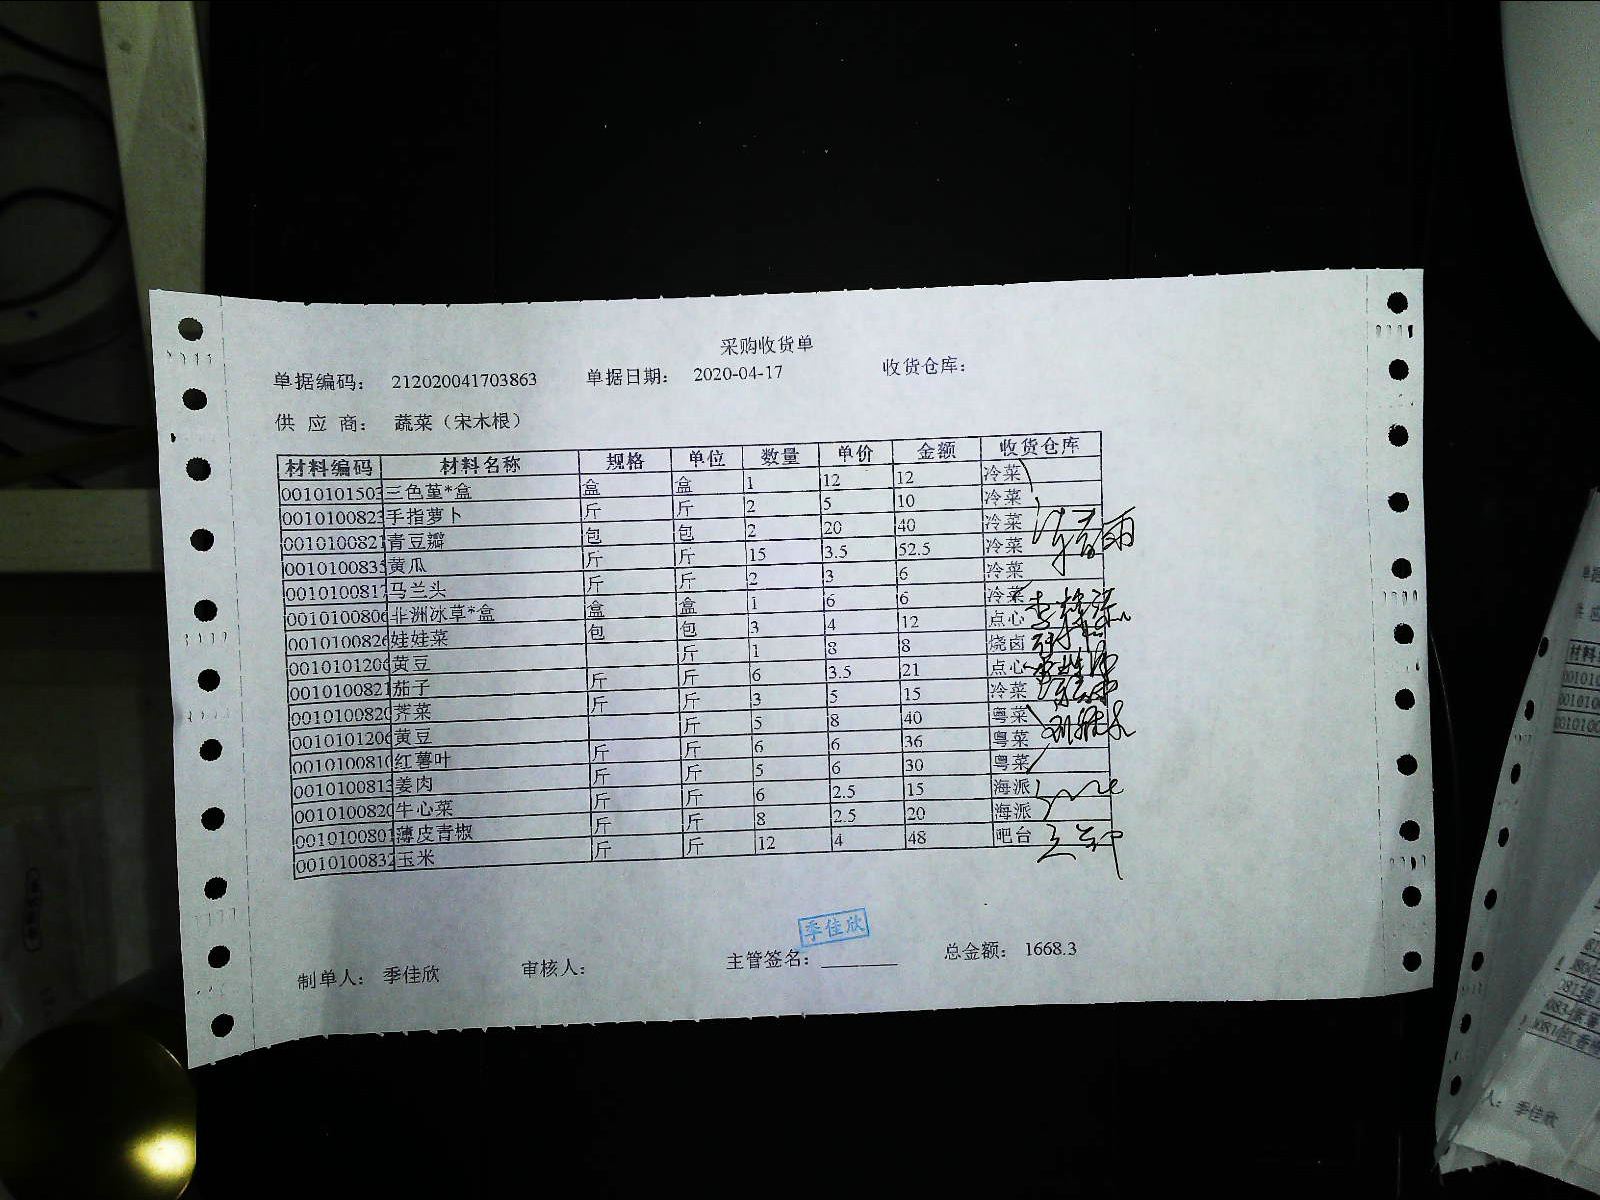 采购收货单
单据编码： 212020041703863 单据日期： 2020-04-17 收货仓库：
供 应 商： 蔬菜（宋木根）
材料编码 材料名称 规格 单位 数量 单价 金额 收货仓库
0010101503 三色堇*盒 盒 盒 1 12 12 冷菜
0010100823 手指萝卜 斤 斤 2 5 10 冷菜
0010100821 青豆瓣 包 包 2 20 40 冷菜
0010100835 黄瓜 斤 斤 15 3.5 52.5 冷菜
0010100817 马兰头 斤 斤 2 3 6 冷菜
0010100806 非洲冰草*盒 盒 盒 1 6 6 冷菜
0010100826 娃娃菜 包 包 3 4 12 点心
0010101206 黄豆 斤 1 8 8 烧卤
0010100821 茄子 斤 斤 6 3.5 21 点心
0010100820 荠菜 斤 斤 3 5 15 冷菜
0010101206 黄豆 斤 5 8 40 粤菜
0010100810 红薯叶 斤 斤 6 6 36 粤菜
0010100813 姜肉 斤 斤 5 6 30 粤菜
0010100820 牛心菜 斤 斤 6 2.5 15 海派
0010100801 薄皮青椒 斤 斤 8 2.5 20 海派
0010100832 玉米 斤 斤 12 4 48 吧台
季佳欣
制单人： 季佳欣 审核人： 主管签名： 总金额： 1668.3
季佳欣